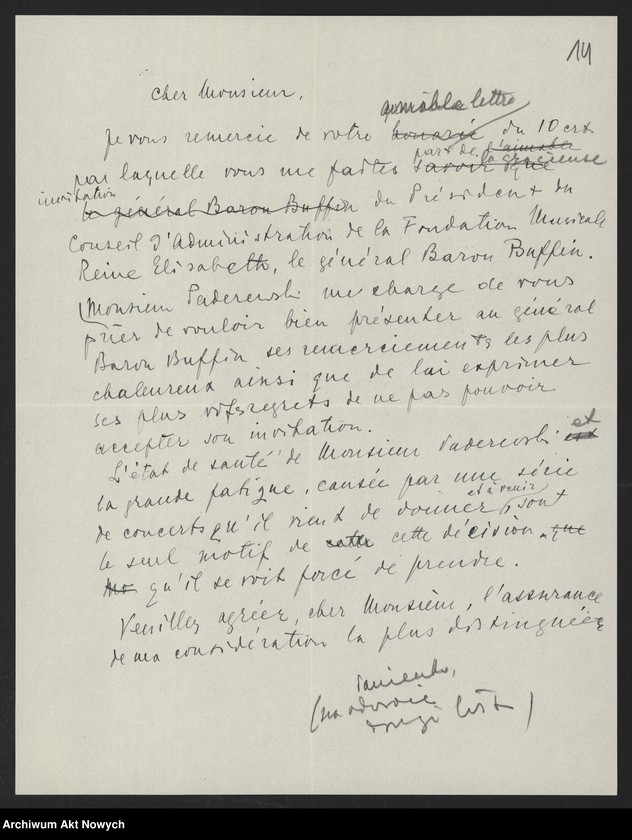 14
Cher Monsieur,
aimable lettre
Je vous remercie de votre du 10 crt
part de l'aimable
par laquelle vous me faites savoir que la gracieuse
invitation
le général Baron Buffin du Président du
Conseil d'Administration de la Fondation Musicale
Reine Elisabeth, le général Baron Buffin.
Monsieur Paderewski me charge de vous
prier de vouloir bien présenter au général
Baron Buffin ses remerciements les plus
chaleureux ainsi que de lui exprimer
ses plus vifs regrets de ne pas pouvoir
accepter son invitation.
L'état de santé de Monsieur Paderewski est et
la grande fatigue, causée par une série
de concerts qu'il vient de donner et à venir, sont
le seul motif de cette cette décision que
Mo qu'il se voit forcé de prendre.
Veuillez agréer, cher Monsieur, l'assurance
de ma considération la plus distinguée
( drugi list )
Archiwum Akt Nowych